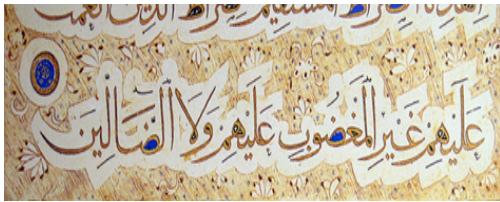 اهدنا الصراط المستقيم صراط الذين أنعمت
عَلَيْهِمْ غَيْرِ الْمَغْضُوبِ عَلَيْهِمْ وَلَا الضَّالِّينَ